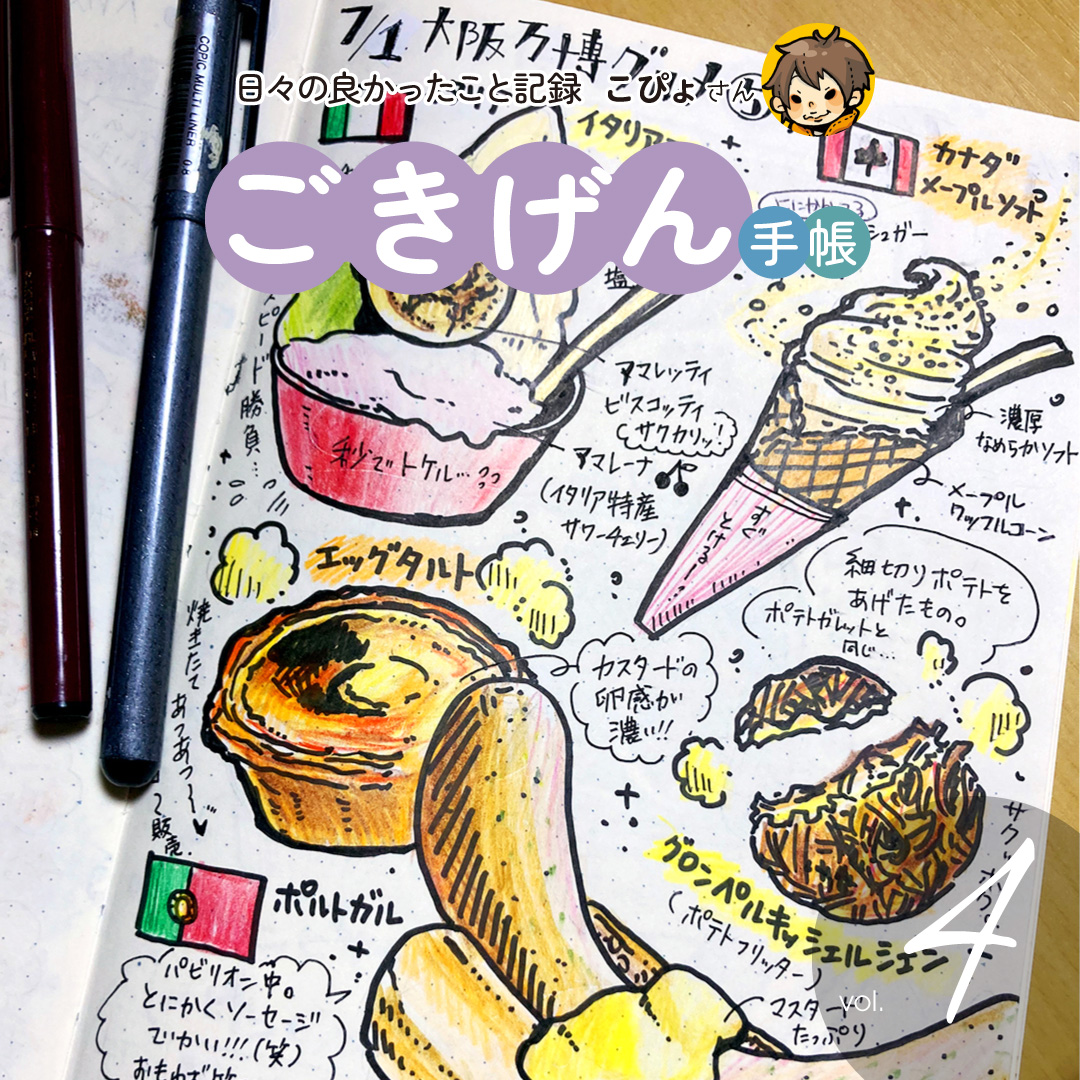 7/1 大阪万博グルメ③
日々の良かったこと記録 こぴょさん
ごきげん手帳
COPIC MULTI LINER 0.8
カナダ
メープルソフト
シュガー
塩
スピード勝負…
アマレッティ
ビスコッティ
サクカリッ!
アマレーナ
(イタリア特産
サワーチェリー)
秒でトケル…
濃厚
なめらかソフト
メープル
ワッフルコーン
すぐとける…
エッグタルト
焼きたて あつあつ〜♥
カスタードの
卵感が
濃い!!
細切りポテトを
あげたもの。
ポテトガレットと
同じ…
ポルトガル
グロンペルキッシェルシェン
(ポテトフリッター)
マスタード
たっぷり
パビリオン中。
とにかくソーセージ
でかい!!!(笑)
vol. 4